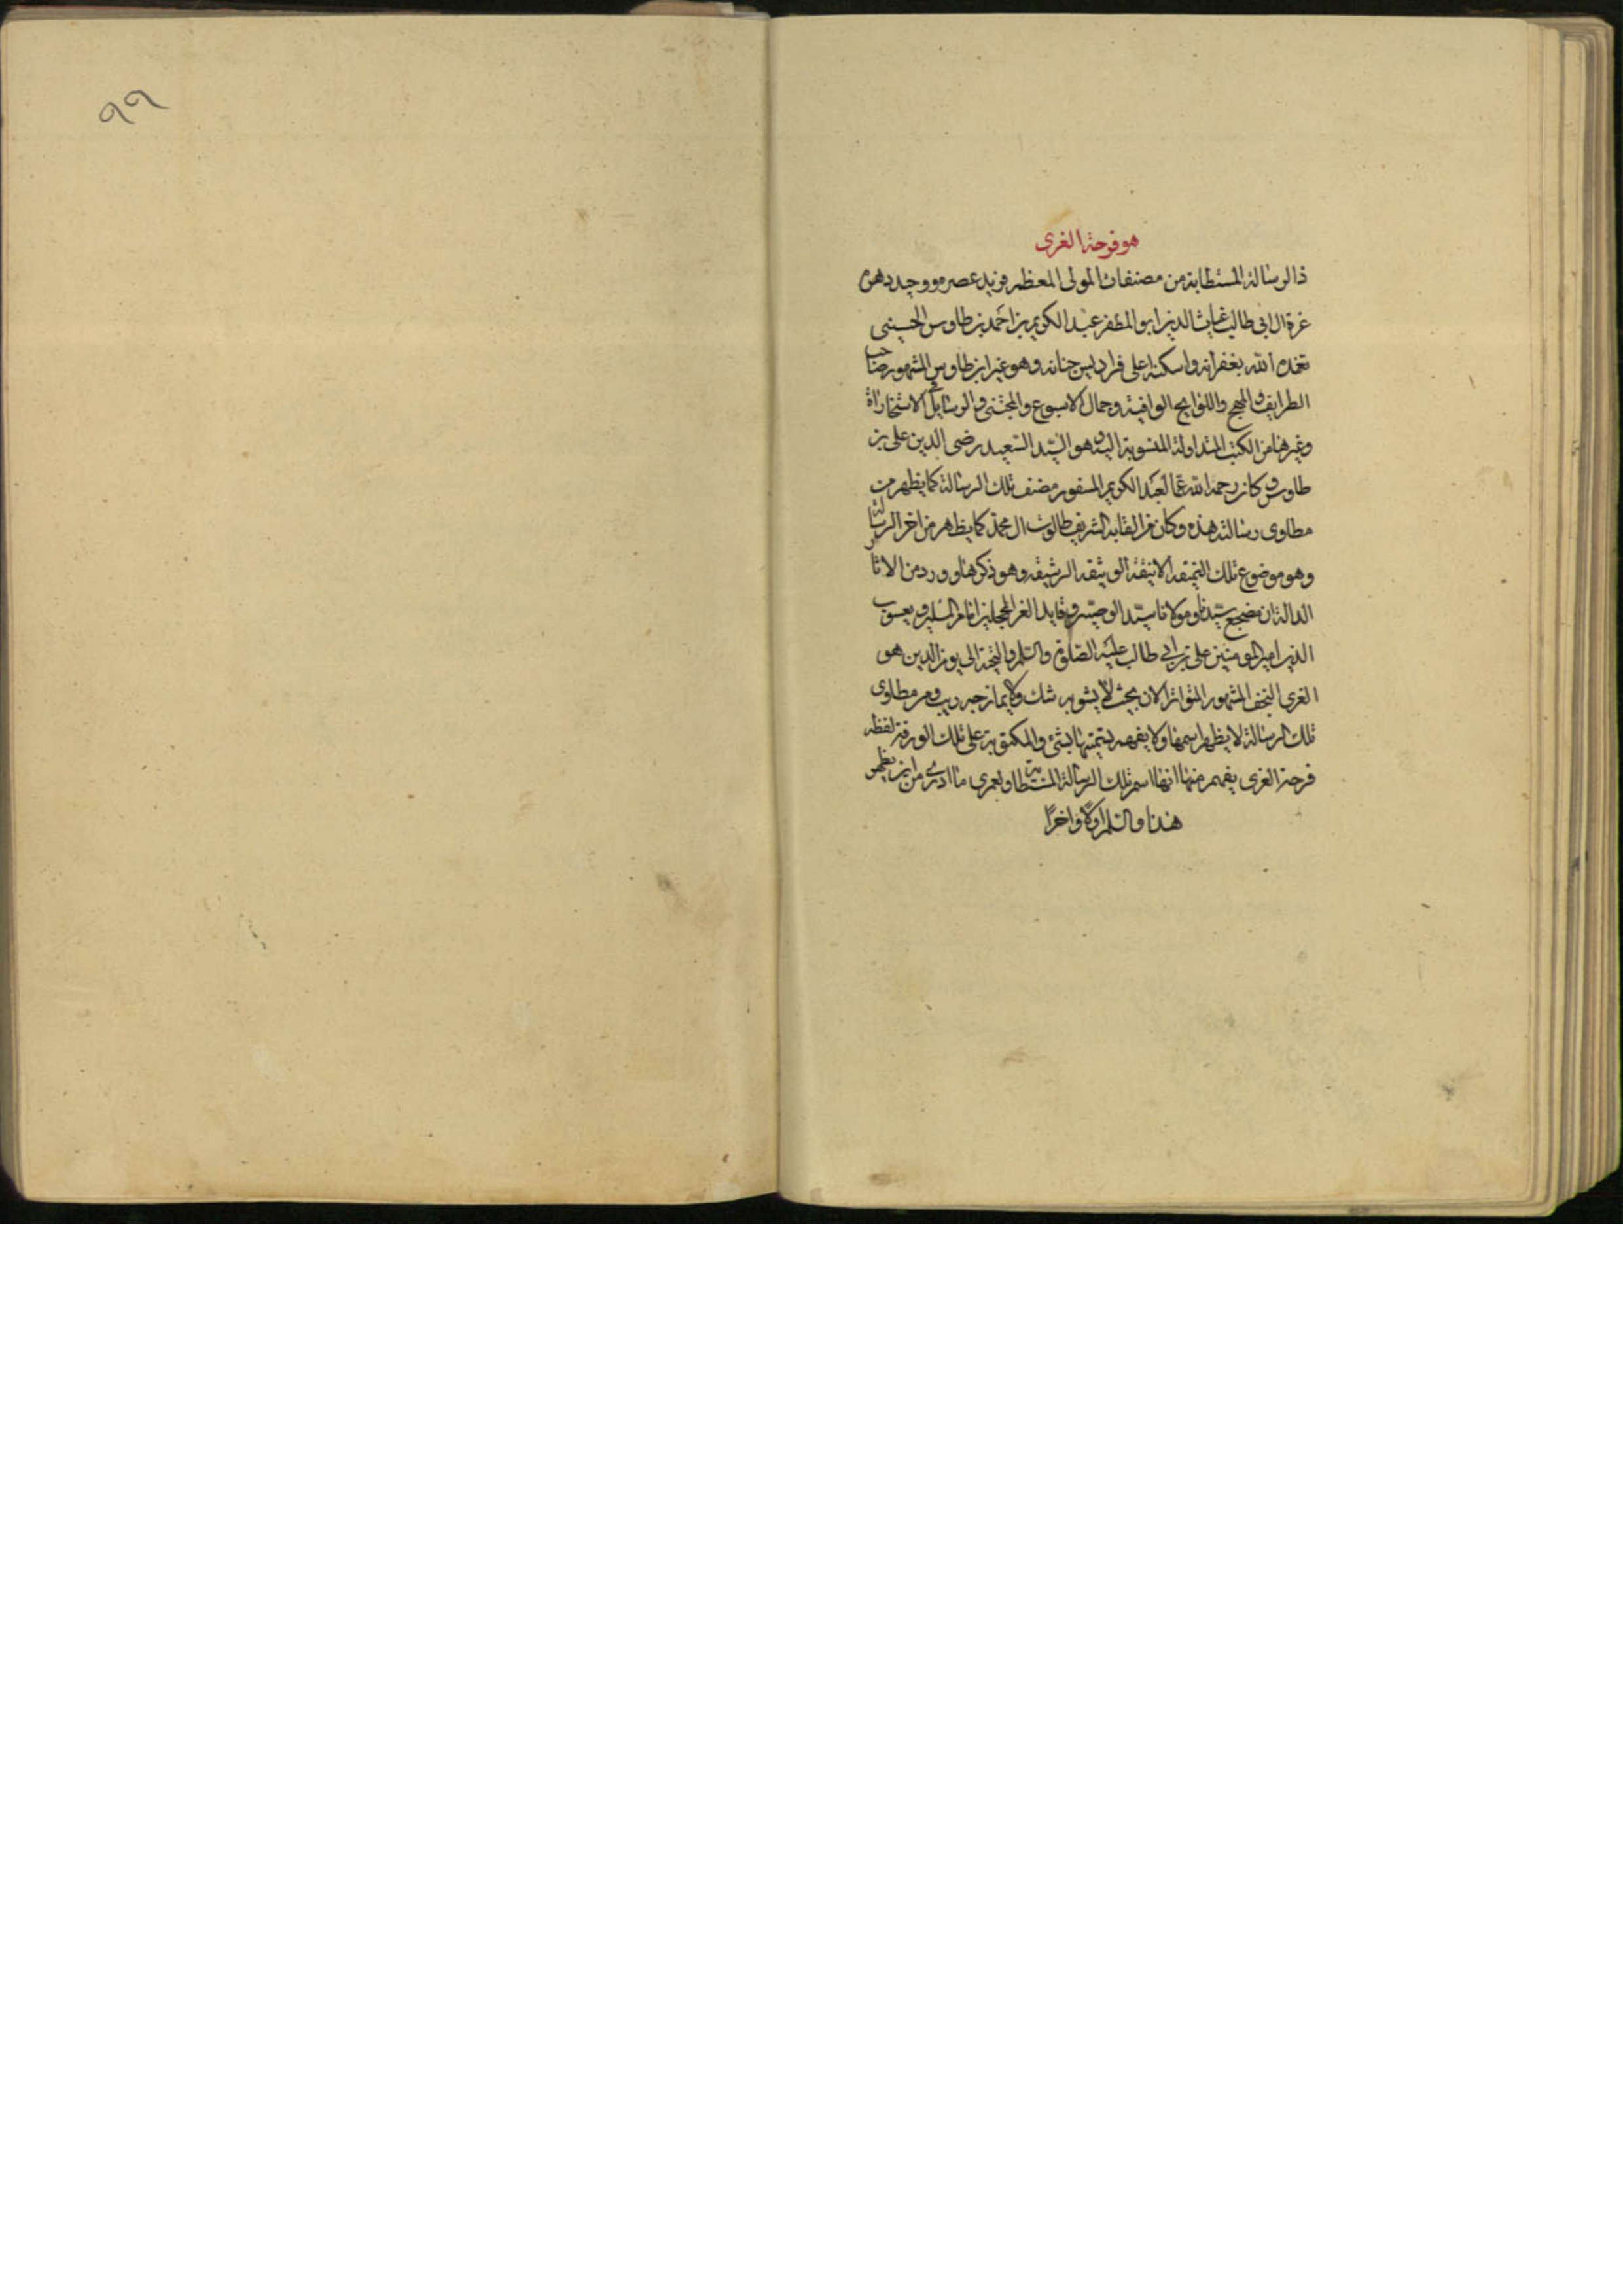 هو فرحة الغرى
ذا الرسالة المستطابة من مصنفات المولى المعظم فريد عصره ووحيد دهره
غرة ال ابى طالب غياث الدين ابو المظفر عبد الكريم بن احمد بن طاوس الحسينى
تغمده الله بغفرانه واسكنه اعلى فراديس جنانه وهو غير ابن طاوس المشهور صاحب
الطرايف و المهج و اللواقيه وجمال الاسبوع والمجتنى و الرسايل فى الاستخارات
وغيرها من الكتب المتداولة المنسوبة اليه وهو السيد السعيد رضى الدين على بن
طاوس و كان رحمه الله عما لعبد الكريم المسفور مصنف تلك الرسالة كما يظهر من
مطاوى رسالته هذه وكان من القابه الشريف طالوت ال محمد كما يظهر من اخر الرسالة
وهو موضوع تلك النميقه الانيقة الوثيقه الرشيقه وهو ذكرها و ورد من الاثار
الدالة ان مضجع سيدنا و مولانا سيد الوصيين و قايد الغر المحجلين امام المسلمين و يعسوب
الدين امير المومنين على بن ابى طالب عليه الصلوة والسلم والتحية الى يوم الدين هو
الغرى النجف المشهور المتواتر الان بحيث لا يشوبه شك ولا يمازجه ريب و من مطاوى
تلك الرسالة لا يظهر اسمها ولا يفهم تسميتها بشئ والمكتوبة على تلك الورقة لفظه
فرحة الغرى يفهم منها انها اسم تلك الرسالة المستطابة ولعمرى ما ادرى من اين يظهر
هذا والسلم اولا واخرا
٩٩